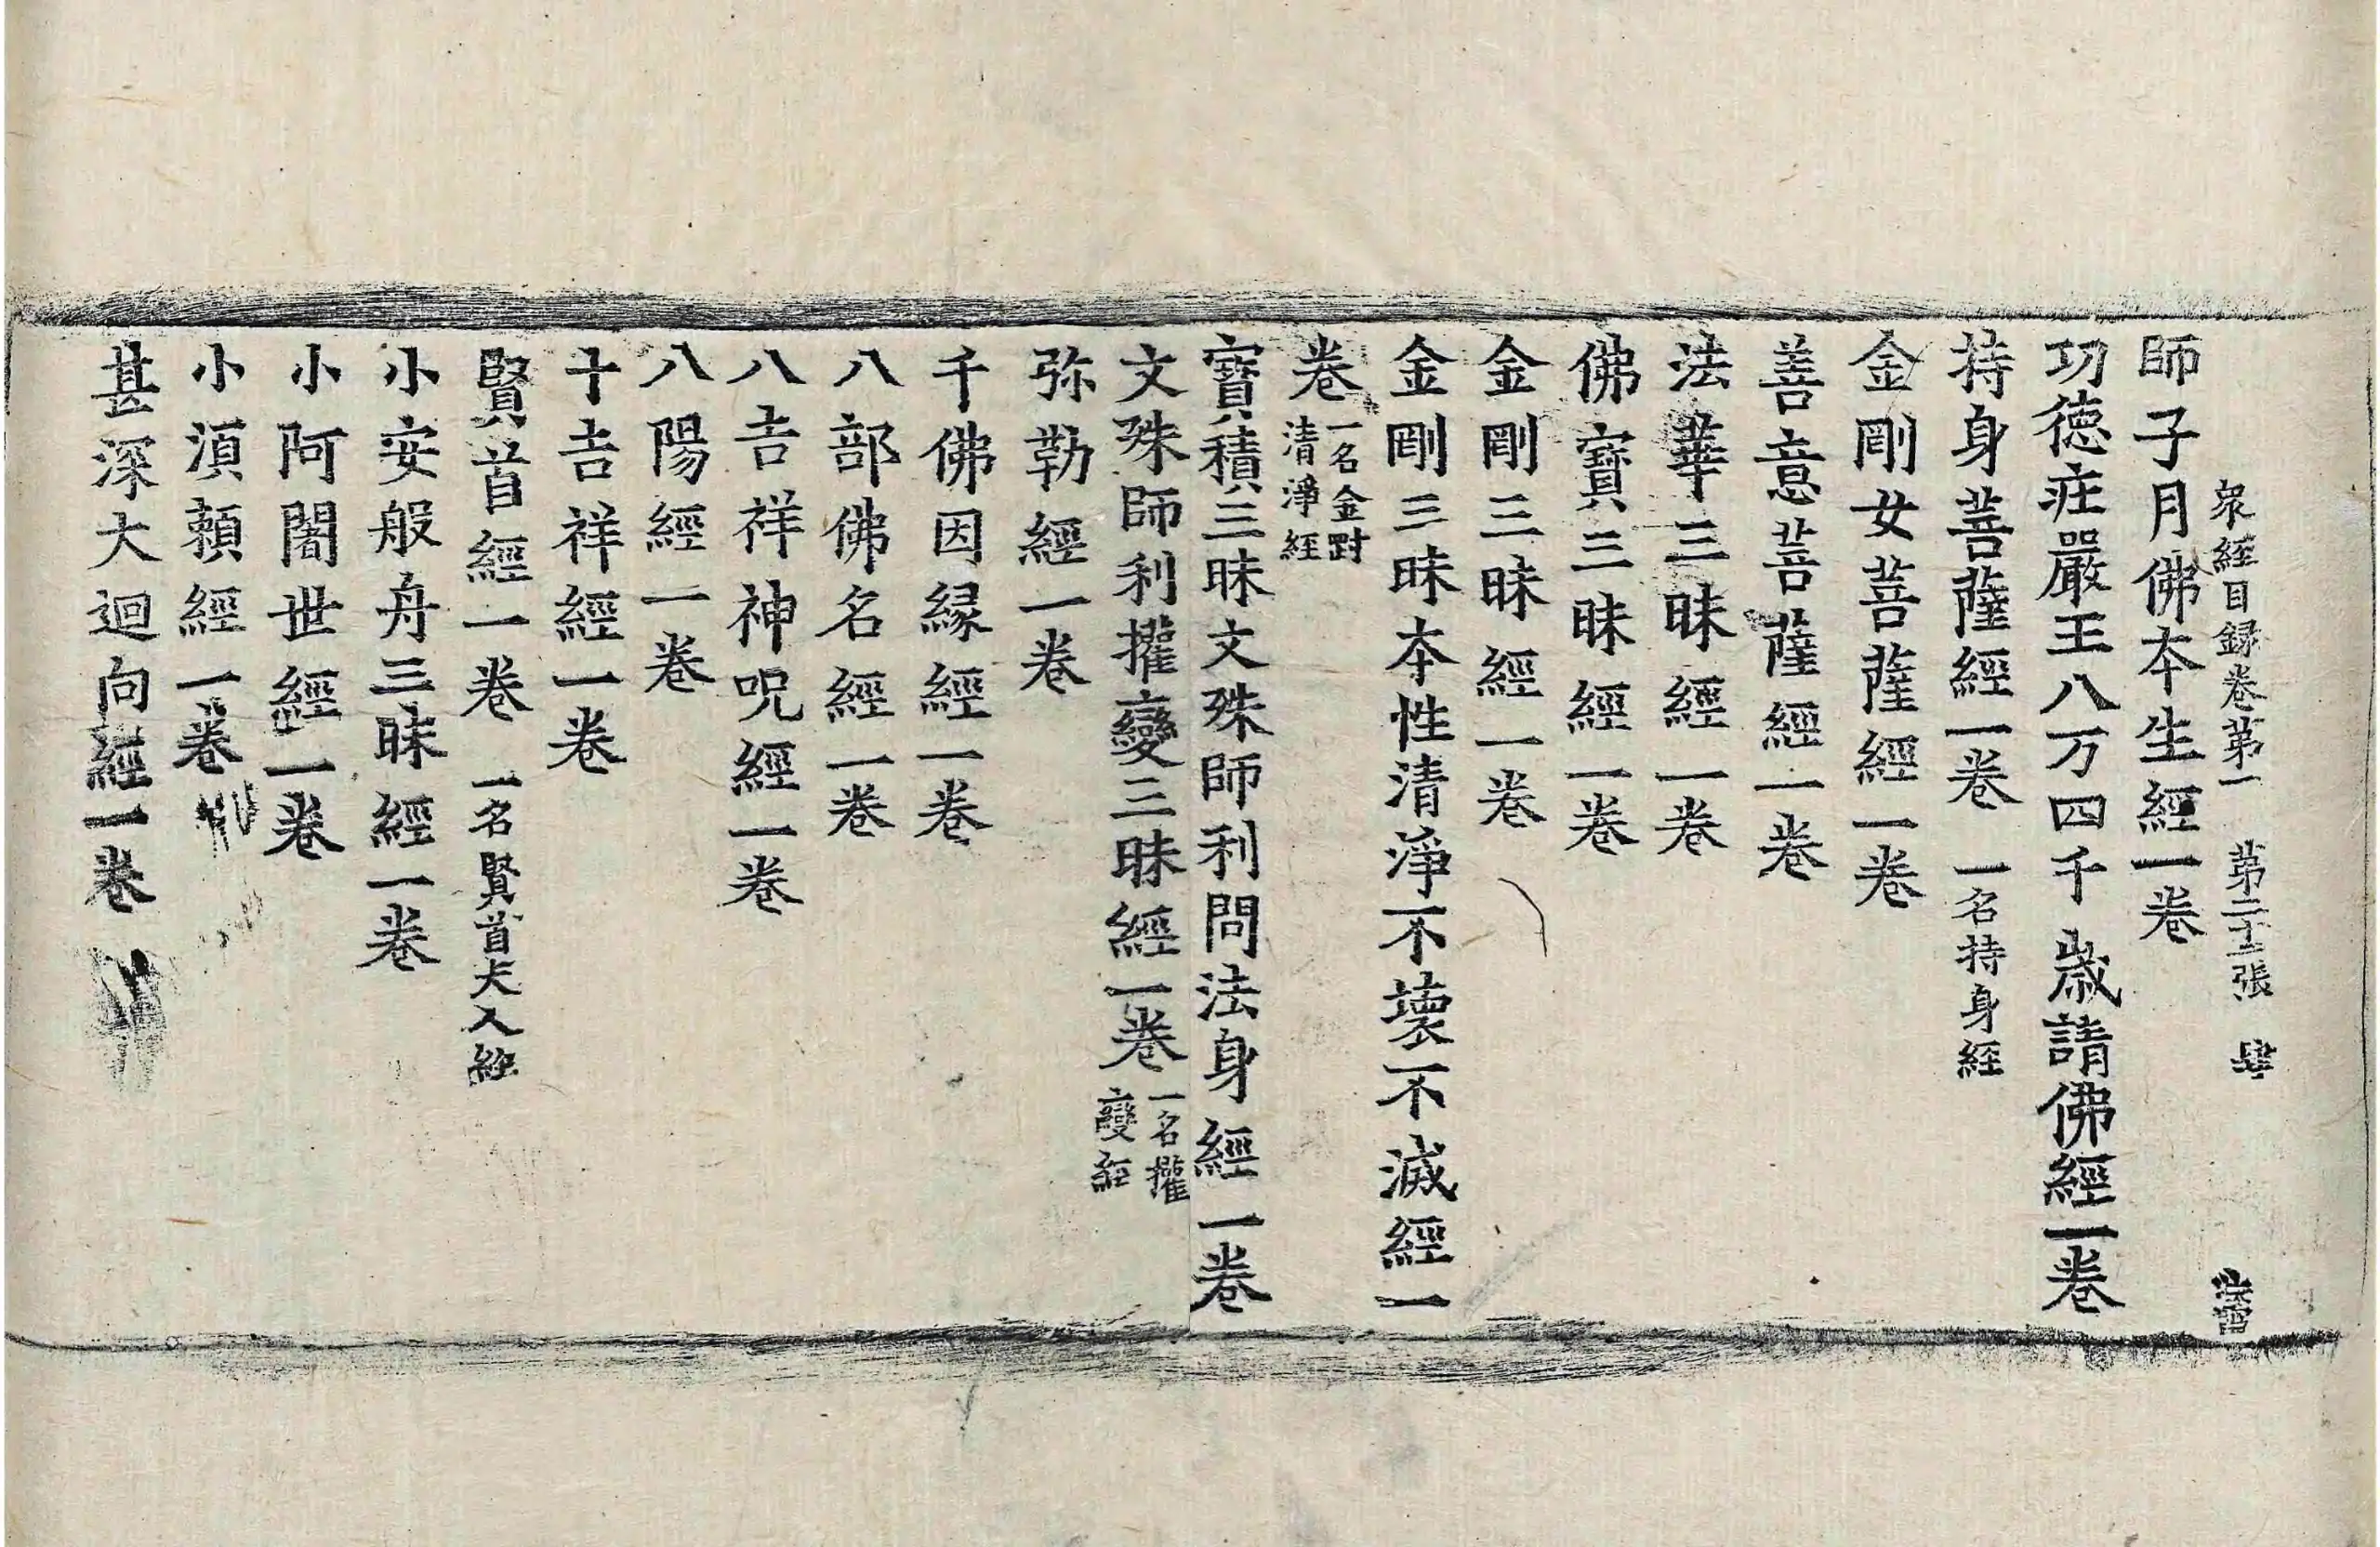 衆經目録卷第一 第二十二張 肆
師子月佛夲生經一卷
功徳庄嚴王八万四千歲請佛經一卷
持身菩薩經一卷 一名持身經
金剛女菩薩經一卷
善意菩薩經一卷
法華三昧經一卷
佛寶三昧經一卷
金剛三昧經一卷
金剛三昧夲性清淨不壞不滅經一
卷 一名金剛
清淨經
寶積三昧文殊師利問法身經一卷
文殊師利權變三昧經一卷 一名權
變經
弥勒經一卷
千佛因縁經一卷
八部佛名經一卷
八吉祥神呪經一卷
八陽經一卷
十吉祥經一卷
賢首經一卷 一名賢首夫人經
小安般舟三昧經一卷
小阿闍世經一卷
小湏頼經一卷
甚深大迴向經一卷